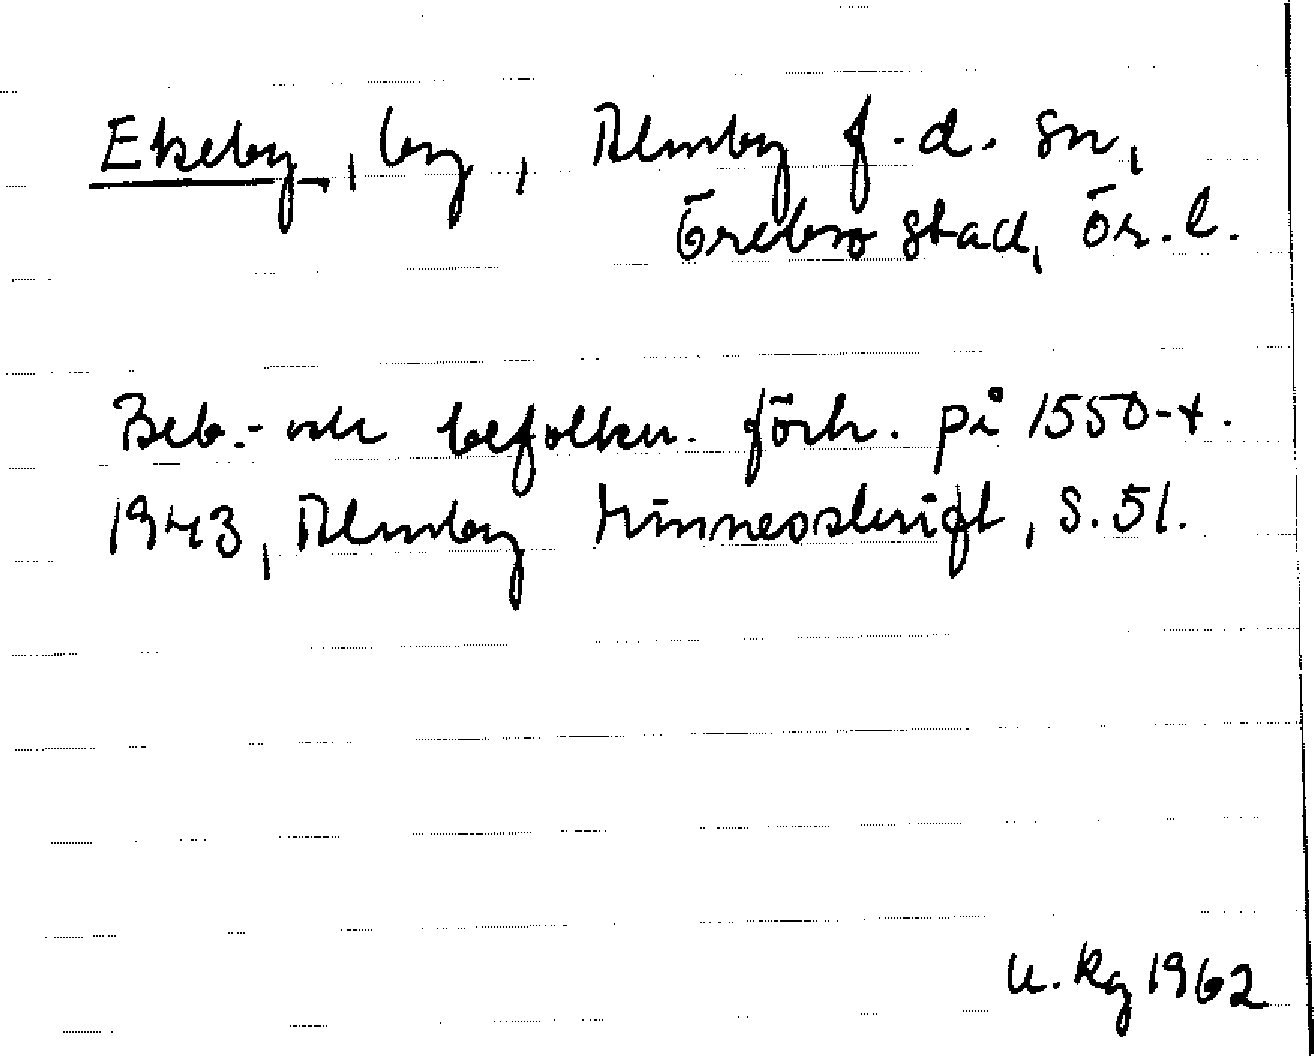 Ekeby, by, Almby f.d. sn,
Örebro stad, Ör. l.
Beb.- och befolkn. förh. på 1550-t.
1943, Almby Minnesskrift, s. 51.
U. Rg 1962